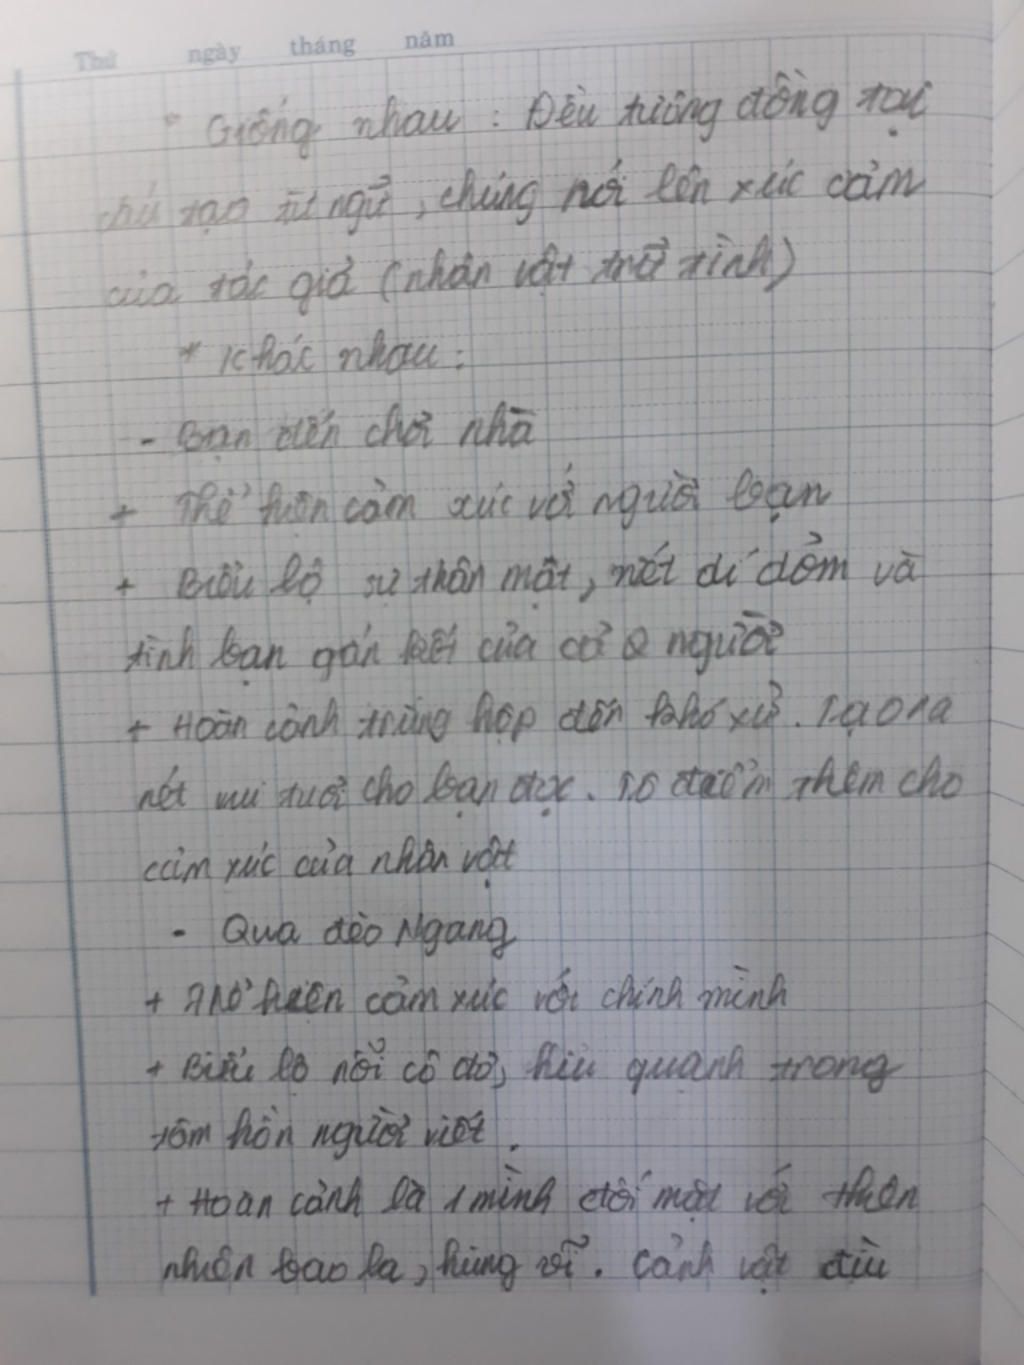 Thứ ngày tháng năm
* Giống nhau : Đều tương đồng tại
tạo từ ngữ, chúng nói lên xúc cảm
của tác giả (nhân vật trữ tình)
* Khác nhau :
- Bạn đến chơi nhà
+ Thể hiện cảm xúc với người bạn
+ Biểu lộ sự thân mật, nét dí dỏm và
tình bạn gắn kết của cả 2 người
+ Hoàn cảnh trùng hợp đến khó xử. Tạo ra
nét vui tươi cho bạn đọc. Tô điểm thêm cho
cảm xúc của nhân vật
- Qua đèo Ngang
+ Thể hiện cảm xúc với chính mình
+ Biểu lộ nỗi cô đơ, hiu quạnh trong
tâm hồn người viết.
+ Hoàn cảnh là 1 mình đối mặt với thiên
nhiên bao la, hùng vĩ. Cảnh vật đìu